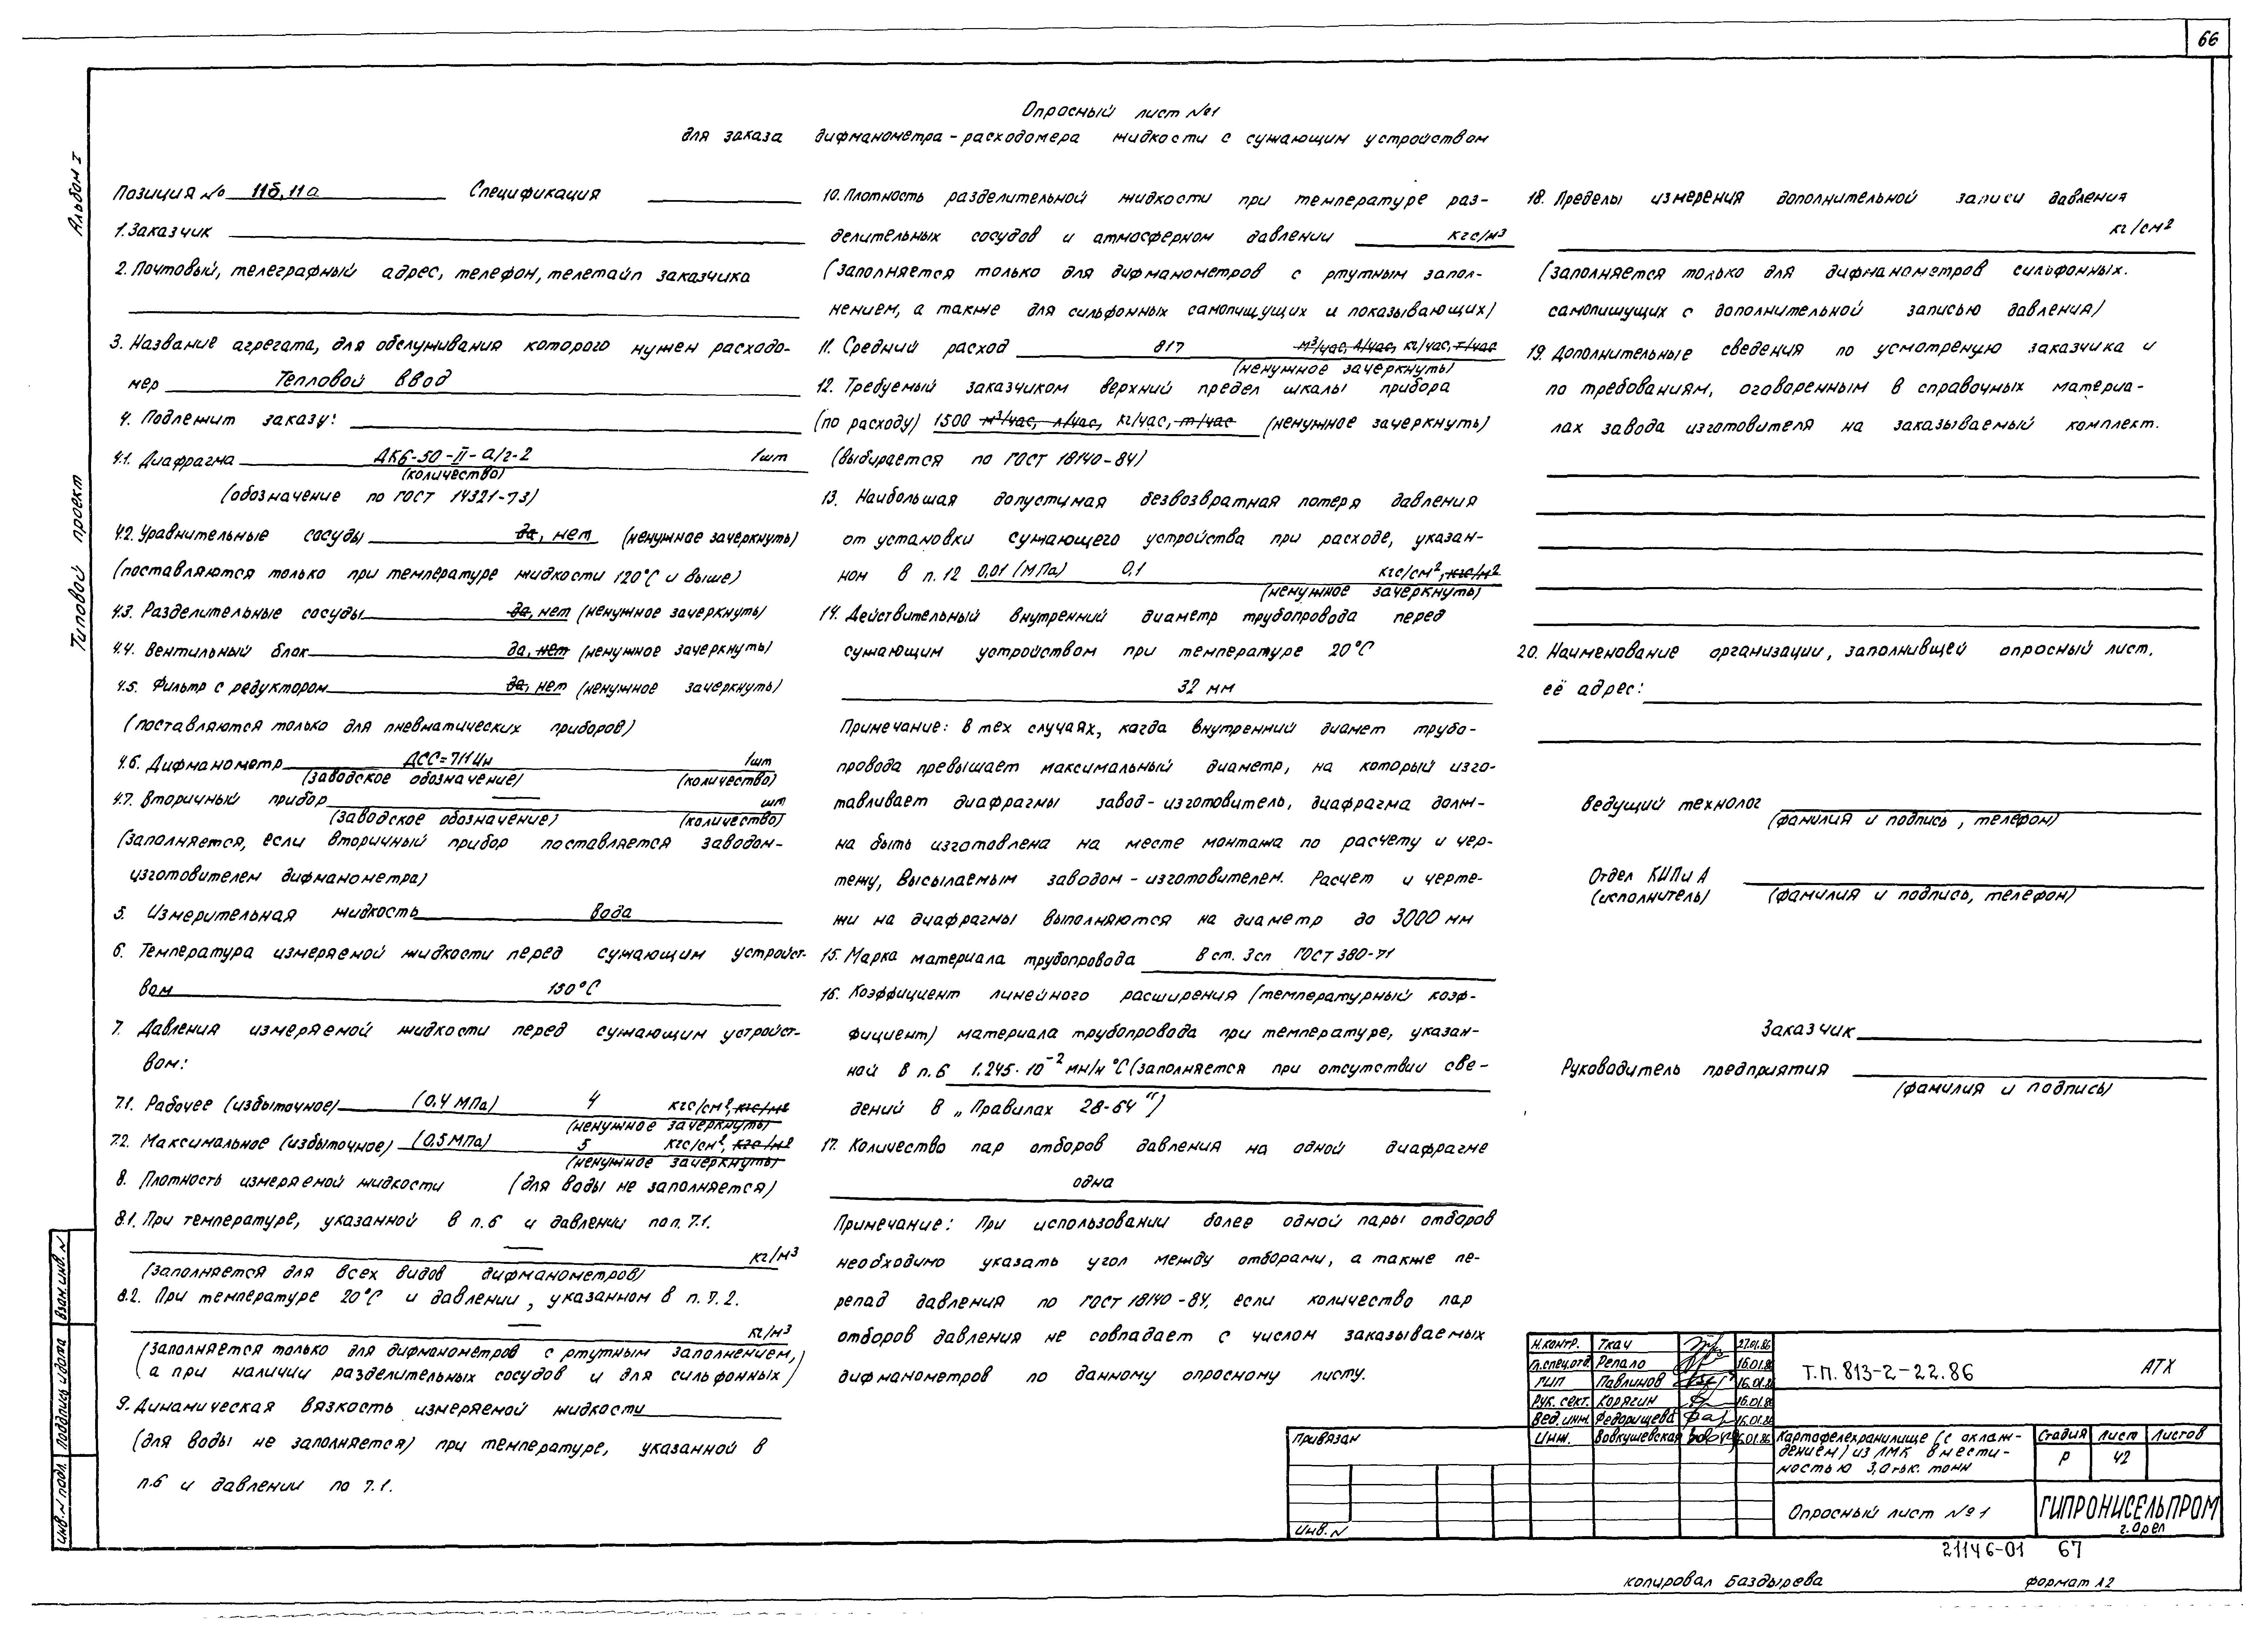 66
Опросный лист №1
для заказа дифманометра-расходомера жидкости с сужающим устройством
Альбом I
Типовой проект
Позиция № 11б, 11а Спецификация
1. Заказчик
2. Почтовый, телеграфный адрес, телефон, телетайп заказчика
3. Название агрегата, для обслуживания которого нужен расходо-
мер Тепловой ввод
4. Подлежит заказу:
4.1. Диафрагма ДК6-50-II-а/г-2 1шт
(количество)
(обозначение по ГОСТ 14321-73)
4.2. Уравнительные сосуды да, нет (ненужное зачеркнуть)
(поставляются только при температуре жидкости 120°С и выше)
4.3. Разделительные сосуды да, нет (ненужное зачеркнуть)
4.4. Вентильный блок да, нет (ненужное зачеркнуть)
4.5. Фильтр с редуктором да, нет (ненужное зачеркнуть)
(поставляются только для пневматических приборов)
4.6. Дифманометр ДСС=711Ин 1шт
(заводское обозначение) (количество)
4.7. Вторичный прибор — шт
(заводское обозначение) (количество)
(заполняется, если вторичный прибор поставляется заводом-
изготовителем дифманометра)
5. Измерительная жидкость вода
6. Температура измеряемой жидкости перед сужающим устройст-
вом 150°С
7. Давления измеряемой жидкости перед сужающим устройст-
вом:
7.1. Рабочее (избыточное) (0.4 МПа) 4 кгс/см², кгс/м²
(ненужное зачеркнуть)
7.2. Максимальное (избыточное) (0.5 МПа) 5 кгс/см², кгс/м²
(ненужное зачеркнуть)
8. Плотность измеряемой жидкости (для воды не заполняется)
8.1. При температуре, указанной в п.6 и давлении по п. 7.1.
— кг/м³
(заполняется для всех видов дифманометров)
8.2. При температуре 20°С и давлении, указанном в п. 7.2.
— кг/м³
(заполняется только для дифманометров с ртутным заполнением,
а при наличии разделительных сосудов и для сильфонных)
9. Динамическая вязкость измеряемой жидкости
(для воды не заполняется) при температуре, указанной в
п.6 и давлении по 7.1.
10. Плотность разделительной жидкости при температуре раз-
делительных сосудов и атмосферном давлении кгс/м³
(заполняется только для дифманометров с ртутным запол-
нением, а также для сильфонных самопищущих и показывающих)
11. Средний расход 817 м³/час, л/час, кг/час, т/час
(ненужное зачеркнуть)
12. Требуемый заказчиком верхний предел шкалы прибора
(по расходу) 1500 м³/час, л/час, кг/час, т/час (ненужное зачеркнуть)
(выбирается по ГОСТ 18140-84)
13. Наибольшая допустимая безвозвратная потеря давления
от установки сужающего устройства при расходе, указан-
ном в п. 12 0,01 (МПа) 0,1 кгс/см², кгс/м²
(ненужное зачеркнуть)
14. Действительный внутренний диаметр трубопровода перед
сужающим устройством при температуре 20°С
32 мм
Примечание: в тех случаях, кагда внутренний диамет трубо-
провода превышает максимальный диаметр, на который изго-
тавливает диафрагмы завод-изготовитель, диафрагма долж-
на быть изготовлена на месте монтажа по расчету и чер-
тежу, высылаемым заводом-изготовителем. Расчет и черте-
жи на диафрагмы выполняются на диаметр до 3000 мм
15. Марка материала трубопровода В ст. 3сп ГОСТ 380-71
16. Коэффициент линейного расширения (температурный коэф-
фициент) материала трубопровода при температуре, указан-
ной в п.6 1.245·10⁻² мм/м °С (заполняется при отсутствии све-
дений в „Правилах 28-64“)
17. Количество пар отборов давления на одной диафрагме
одна
Примечание: При использовании более одной пары отборов
необходимо указать угол между отборами, а также пе-
репад давления по ГОСТ 18140-84, если количество пар
отборов давления не совпадает с числом заказываемых
дифманометров по данному опросному листу.
18. Пределы измерения дополнительной записи давления
кг/см²
(заполняется только для дифманометров сильфонных.
самопишущих с дополнительной записью давления)
19. Дополнительные сведения по усмотрению заказчика и
по требованиям, оговоренным в справочных материа-
лах завода изготовителя на заказываемый комплект.
20. Наименование организации, заполнившей опросный лист.
её адрес:
Ведущий технолог
(фамилия и подпись, телефон)
Отдел КИПиА
(исполнитель) (фамилия и подпись, телефон)
Заказчик
Руководитель предприятия
(фамилия и подпись)
Н.контр. Ткач 27.01.86
Гл.спец.отд. Репало 16.01.86
ГИП Павлинов 16.01.86
Рук. сект. Корягин 16.01.86
Вед. инж. Федорищева 16.01.86
Инж. Вовкушевская 16.01.86
Т.П. 813-2-22.86 АТХ
Картофелехранилище (с охлаж-
дением) из ЛМК вмести-
мостью 3,0 тыс. тонн
Стадия Лист Листов
Р 42
Опросный лист №1
ГИПРОНИСЕЛЬПРОМ
г. Орел
Привязан
Инв. N
Взам. инв. N
Подпись и дата
Инв. N подл.
21146-01 67
копировал Баздырева
формат А2